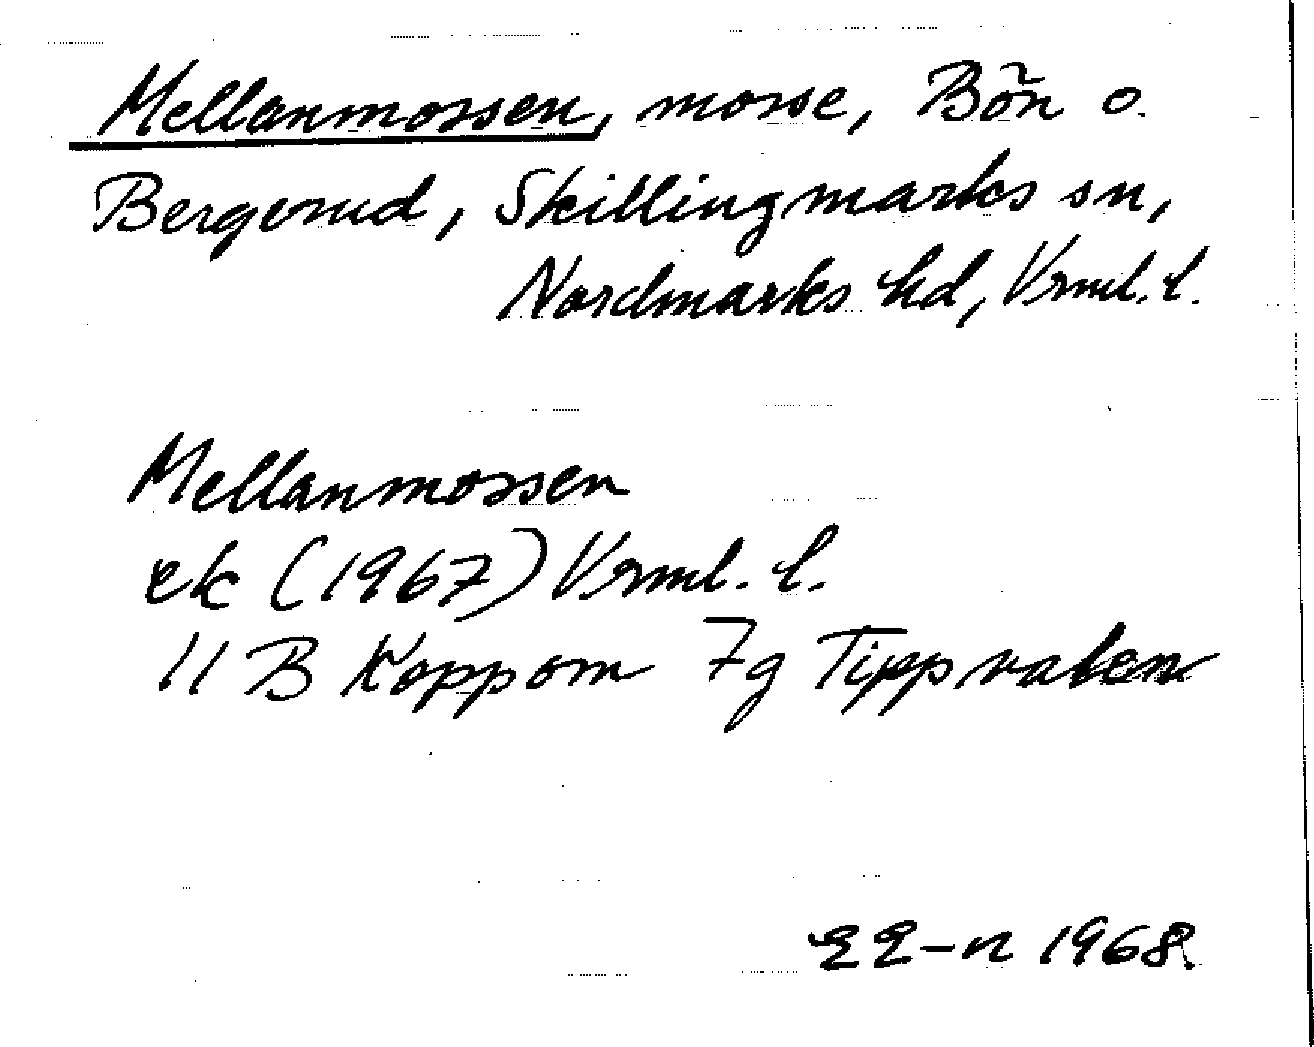 Mellanmossen, mosse, Bön o.
Bergerud, Skillingmarks sn,
Nordmarks hd, Vrml. l.
Mellanmossen
ek (1967) Vrml. l.
11 B Koppom 7g
EE-n 1968.